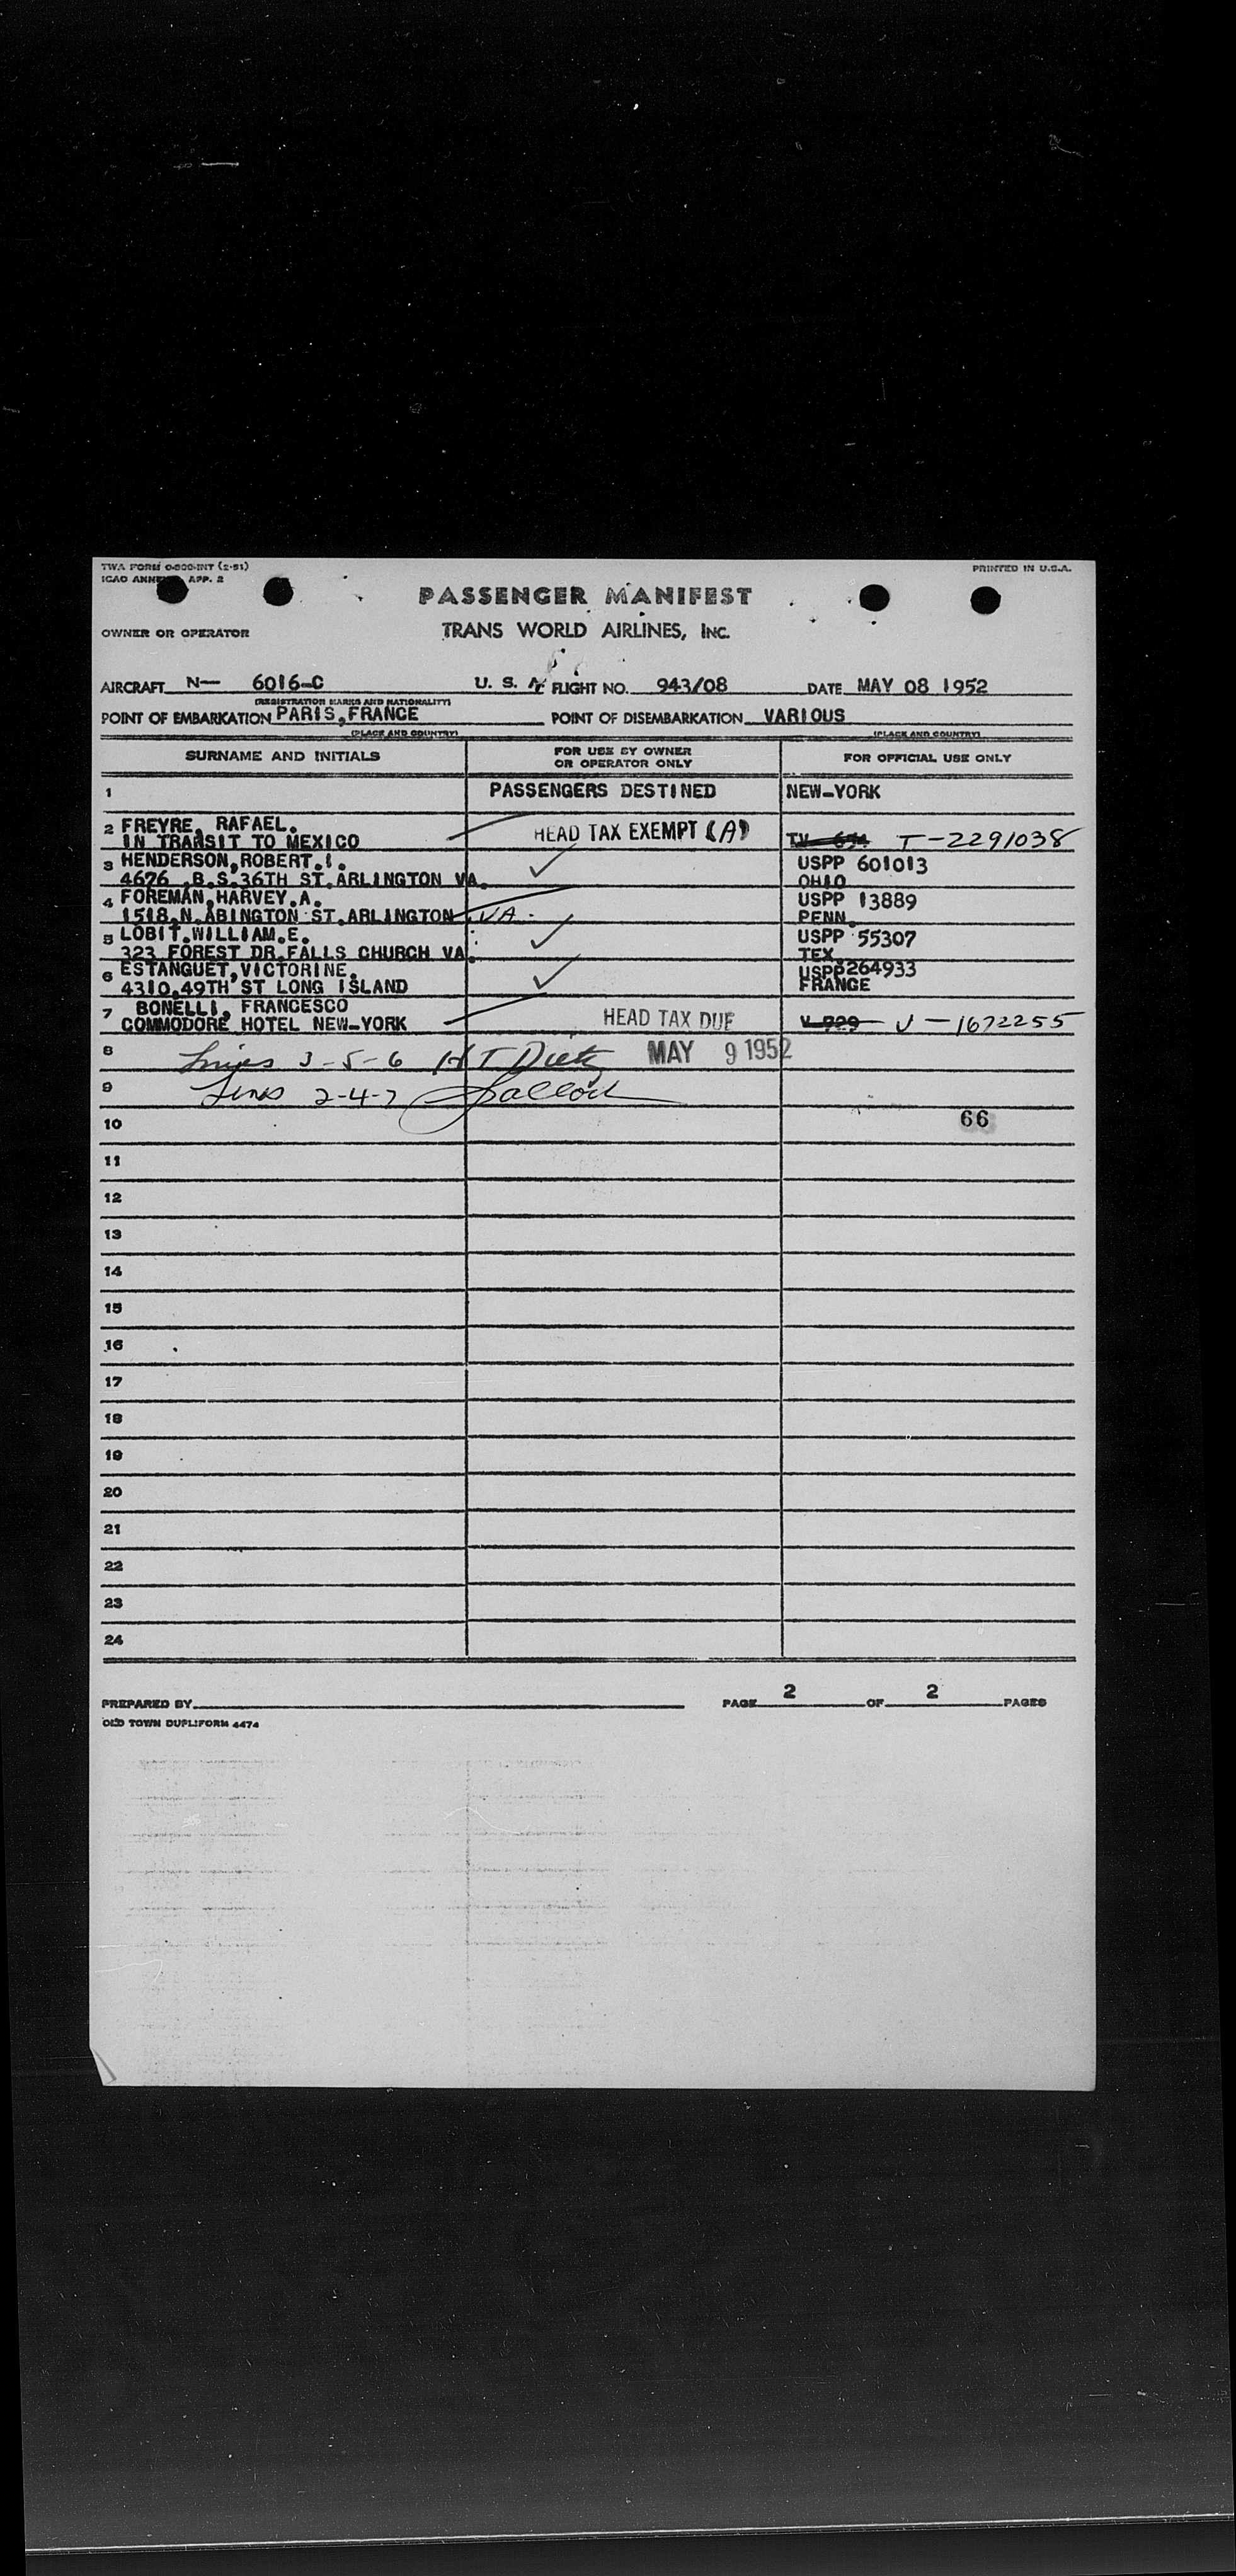 TWA FORM 0-800-INT (2-51)
ICAO ANNEX APP. 2
PRINTED IN U.S.A.
PASSENGER MANIFEST
OWNER OR OPERATOR TRANS WORLD AIRLINES, INC.
AIRCRAFT N— 6016-C U. S. A FLIGHT NO. 943/08 DATE MAY 08 1952
(REGISTRATION MARKS AND NATIONALITY)
POINT OF EMBARKATION PARIS, FRANCE POINT OF DISEMBARKATION VARIOUS
(PLACE AND COUNTRY) (PLACE AND COUNTRY)
SURNAME AND INITIALS FOR USE BY OWNER OR OPERATOR ONLY FOR OFFICIAL USE ONLY
1 PASSENGERS DESTINED NEW-YORK
2 FREYRE, RAFAEL.
IN TRANSIT TO MEXICO HEAD TAX EXEMPT (A) T-2291038
3 HENDERSON,ROBERT.I. USPP 601013
4676 .B.S.36TH ST.ARLINGTON VA. OHIO
4 FOREMAN,HARVEY.A. USPP 13889
1518.N.ABINGTON ST.ARLINGTON VA. PENN.
5 LOBIT.WILLIAM.E. USPP 55307
323 FOREST DR.FALLS CHURCH VA. TEX.
6 ESTANGUET,VICTORINE. USPP264933
4310.49TH ST LONG ISLAND FRANCE
7 BONELLI, FRANCESCO
COMMODORE HOTEL NEW-YORK HEAD TAX DUE V-729 V-1672255
8 Lines 3-5-6 H T Dietz MAY 9 1952
9 Lines 2-4-7
10 66
11
12
13
14
15
16
17
18
19
20
21
22
23
24
PREPARED BY PAGE 2 OF 2 PAGES
OLD TOWN DUPLIFORM 4474